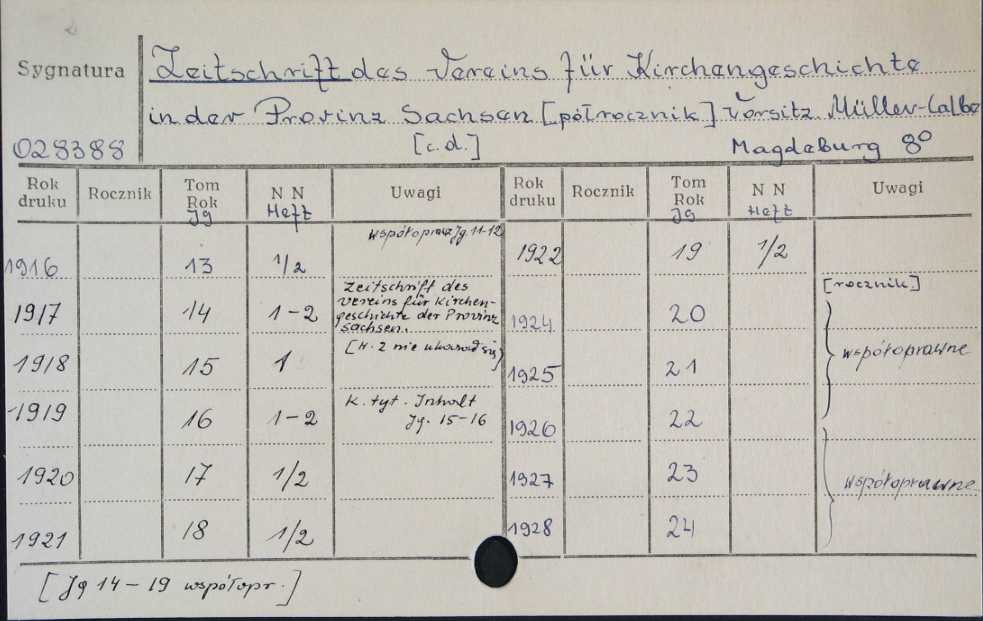 Sygnatura
028388
Zeitschrift des Vereins für Kirchengeschichte
in der Provinz Sachsen [półrocznik] Vorsitz Müller-Calbe
[c.d.] Magdeburg 8⁰
Rok druku Rocznik Tom Rok Jg N N Heft Uwagi Rok druku Rocznik Tom Rok Jg N N Heft Uwagi
współopraw Jg 11-12
1916 13 1/2
1922 19 1/2
Zeitschrift des
Vereins für Kirchen-
geschichte der Provinz
Sachsen.
1917 14 1-2
[rocznik]
1924 20
[H. 2 nie ukazał się]
1918 15 1
1925 21
współoprawne
K. tyt. Inhalt
Jg. 15-16
1919 16 1-2
1926 22
1920 17 1/2
1927 23
współoprawne
1921 18 1/2
1928 24
[Jg 14-19 współopr.]